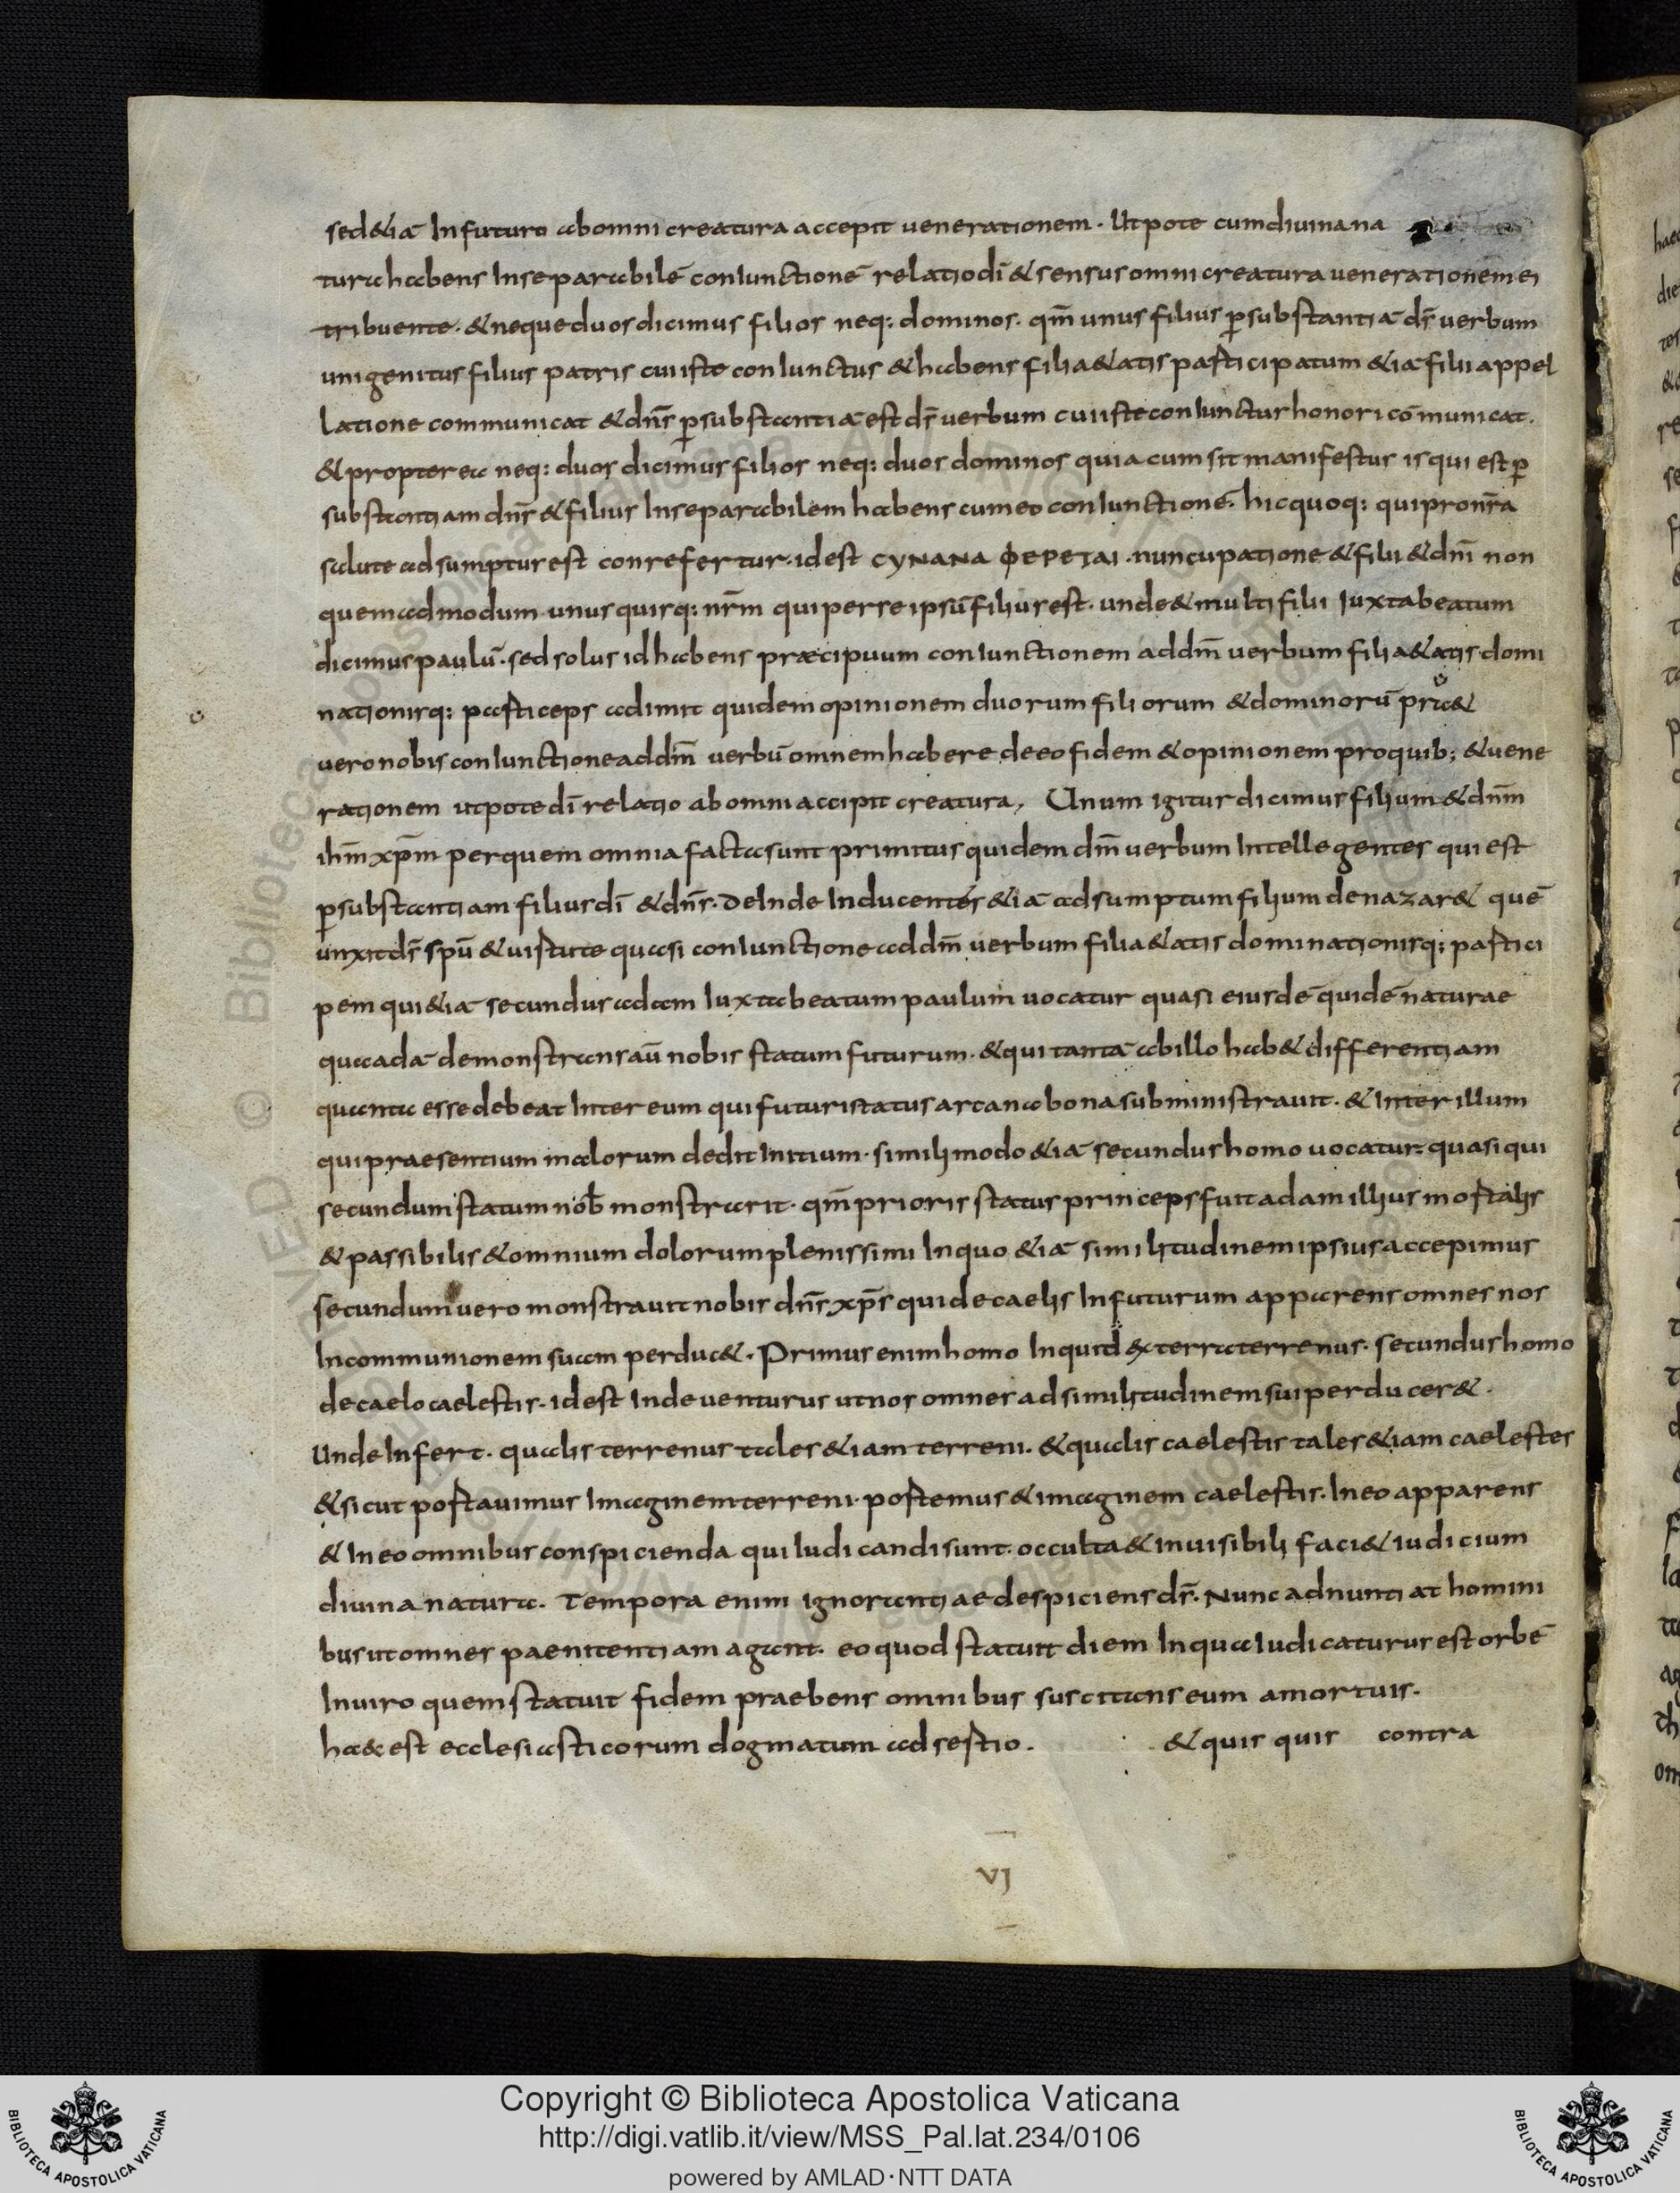 sed&iā Infuturo abomni creatura accepit uenerationem. Utpote cumdiuinana
tura habens Inseparabilē coniunctionē relatiodī & sensus omni creatura uenerationem ei
tribuente. & neque duos dicimus filios neq: dominos. qm̄ unus filius ꝑsubstantiā dr̄ uerbum
unigenitus filius patris cui iste coniunctus & habens filia&atis participatum &iā filii appel
latione communicat & dnr̄ ꝑsubstantiā est dr̄ uerbum cui iste coniunctus honori cōmunicat.
& propterea neq: duos dicimus filios neq: duos dominos quia cum sit manifestus is qui est ꝑ
substantiam dnr̄ & filius Inseparabilem habens cum eo coniunctionē. hicquoq: quipronr̄a
salute adsumptus est conrefertur. idest CYNANA ΦEPETAI. nuncupatione & filii & dnī non
quemadmodum unusquisq: nr̄m qui perse ipsū filius est. unde & multi filii Iuxtabeatum
dicimus paulū. sed solus id habens præcipuum coniunctionem addm̄ uerbum filia&atis domi
nationisq: particeps adimit quidem opinionem duorum filiorum & dominorū pra&
uero nobis coniunctione addm̄ uerbū omnem habere deeo fidem & opinionem proquib; & uene
rationem utpote dī relatio abomni accipit creatura, Unum igitur dicimus filium & dnm̄
ihm̄ xp̄m perquem omnia facta sunt primitus quidem dm̄ uerbum Intellegentes qui est
ꝑsubstantiam filius dī & dnr̄. deInde Inducentes &iā adsumptum filium denazar& quē
unxit dr̄ spū & uirtute quasi coniunctione addm̄ uerbum filia&atis dominationisq: partici
pem qui&iā secundus adam Iuxtabeatum paulum uocatur quasi eiusdē quidē naturae
qua adā demonstrans aū nobis statum futurum. & qui tantā abillo hab& differentiam
quanta esse debeat Inter eum qui futuristatus arcana bona subministrauit. & Inter illum
qui praesentium malorum dedit Initium. simili modo &iā secundus homo uocatur quasi qui
secundum statum nob̄ monstrarit. qm̄ prioris status princeps fuit adam illius mortalis
& passibilis & omnium dolorum plenissimi Inquo &iā similitudinem ipsius accepimus
secundum uero monstrauit nobis dnr̄ xp̄s qui decaelis Infuturum apparens omnes nos
Incommunionem suam perduc&. Primus enim homo Inquid exterra terrenus. secundus homo
decaelo caelestis. idest Inde uenturus ut nos omnes ad similitudinem sui perducer&.
UndeInfert. qualis terrenus tales &iam terreni. & qualis caelestis tales &iam caelestes
& sicut portauimus Imaginem terreni. portemus & imaginem caelestis. Ineo apparens
& Ineo omnibus conspicienda qui Iudicandi sunt occulta & inuisibili faci& iudicium
diuina natura. Tempora enim ignorantiae despiciens dr̄. Nunc adnuntiat homini
bus ut omnes paenitentiam agant. eo quod statuit diem Inqua Iudicaturus est orbē
Inuiro quem statuit fidem praebens omnibus suscitans eum amortuis.
ha& est ecclesiasticorum dogmatum adsertio. & quis quis contra
VI
Copyright © Biblioteca Apostolica Vaticana
http://digi.vatlib.it/view/MSS_Pal.lat.234/0106
powered by AMLAD·NTT DATA
BIBLIOTECA APOSTOLICA VATICANA
BIBLIOTECA APOSTOLICA VATICANA